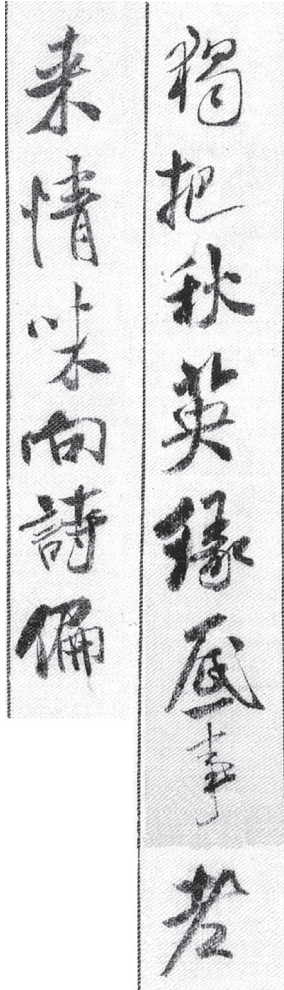 獨把秋英緣底事老
来情味向詩偏